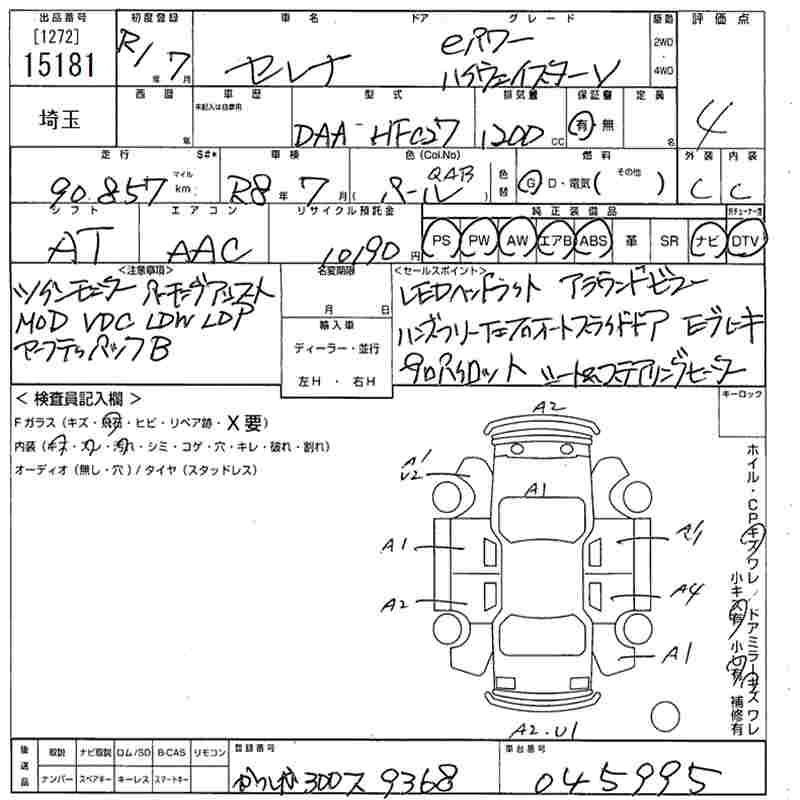 出品番号 初度登録 車名 ドア グレード 駆動 評価点
[1272]
15181
R1年7月
セレナ
eパワー
ハイウェイスターV
2WD・4WD
4
埼玉
西暦 車歴 型式 排気量 保証書 定員
年 未記入は自家用 DAA-HFC27 1200cc 有・無 名
走行 S#* 車検 色(Col.No) 色替 燃料 外装 内装
90.857 マイル km R8年7月 (パール QAB) G D・電気( その他 ) C C
シフト エアコン リサイクル預託金 純正装備品
AT AAC 10190円 PS PW AW エアB ABS 革 SR ナビ DTV
<注意事項> 名変期限 <セールスポイント>
ツインモニター パーキングアシスト
MOD VDC LDW LDP
月 日
輸入車
ディーラー・並行
左H・右H
LEDヘッドライト アラウンドビュー
ハンズフリー 両オートスライドドア Eブレーキ
プロパイロット シート&ステアリングヒーター
<検査員記入欄> キーロック
Fガラス(キズ・飛石・ヒビ・リペア跡・X要)
内装(キズ・スレ・汚れ・シミ・コゲ・穴・キレ・破れ・割れ)
オーディオ(無し・穴)/タイヤ(スタッドレス)
A2
A1
U2
A1
A1 A1
A2 A4
A1
A2.U1
ホイル・CPキズワレ/ドアミラーキズワレ
小キズ有 小凹有 補修有
後送品 取説 ナビ取説 ロム/SD B-CAS リモコン 登録番号 車台番号
ナンバー スペアキー キーレス スマートキー 300ス9368 045995